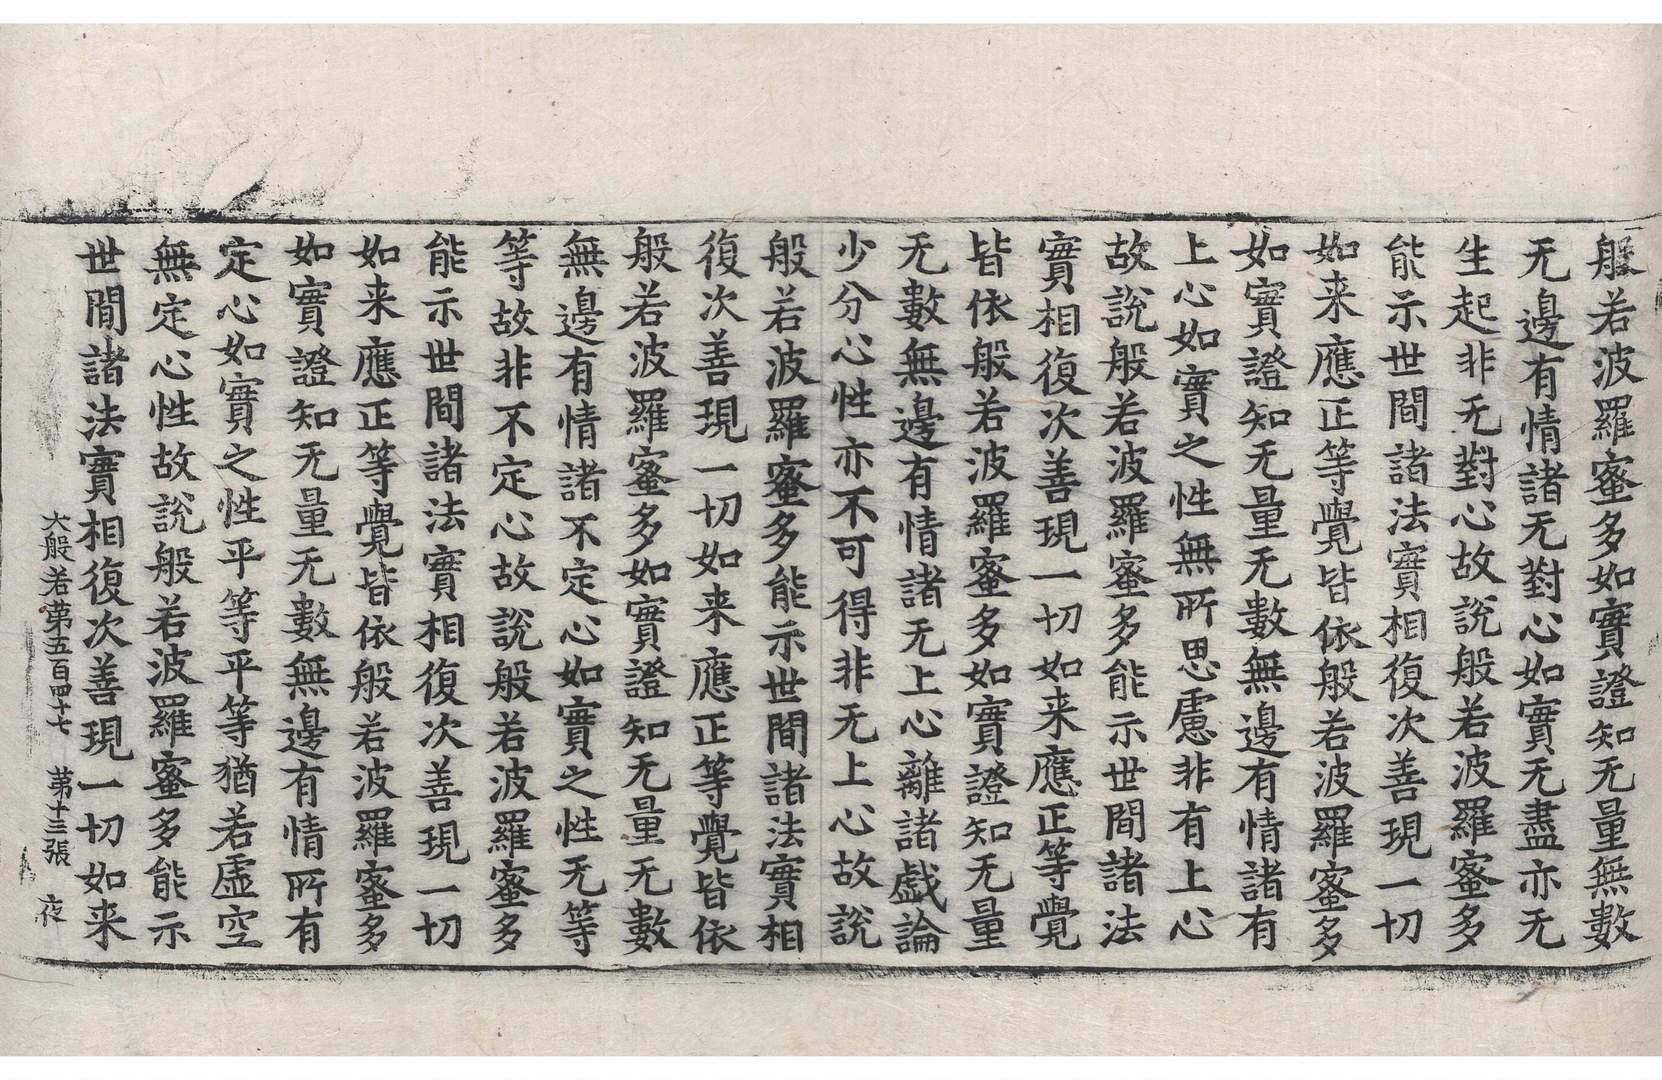 般若波羅蜜多如實證知无量無數
无邊有情諸无對心如實无盡亦无
生起非无對心故說般若波羅蜜多
能示世間諸法實相復次善現一切
如来應正等覺皆依般若波羅蜜多
如實證知无量无數無邊有情諸有
上心如實之性無所思慮非有上心
故說般若波羅蜜多能示世間諸法
實相復次善現一切如来應正等覺
皆依般若波羅蜜多如實證知无量
无數無邊有情諸无上心離諸戲論
少分心性亦不可得非无上心故說
般若波羅蜜多能示世間諸法實相
復次善現一切如来應正等覺皆依
般若波羅蜜多如實證知无量无數
無邊有情諸不定心如實之性无等
等故非不定心故說般若波羅蜜多
能示世間諸法實相復次善現一切
如来應正等覺皆依般若波羅蜜多
如實證知无量无數無邊有情所有
定心如實之性平等平等猶若虛空
無定心性故說般若波羅蜜多能示
世間諸法實相復次善現一切如来
大般若第五百四十七 第十三張 夜